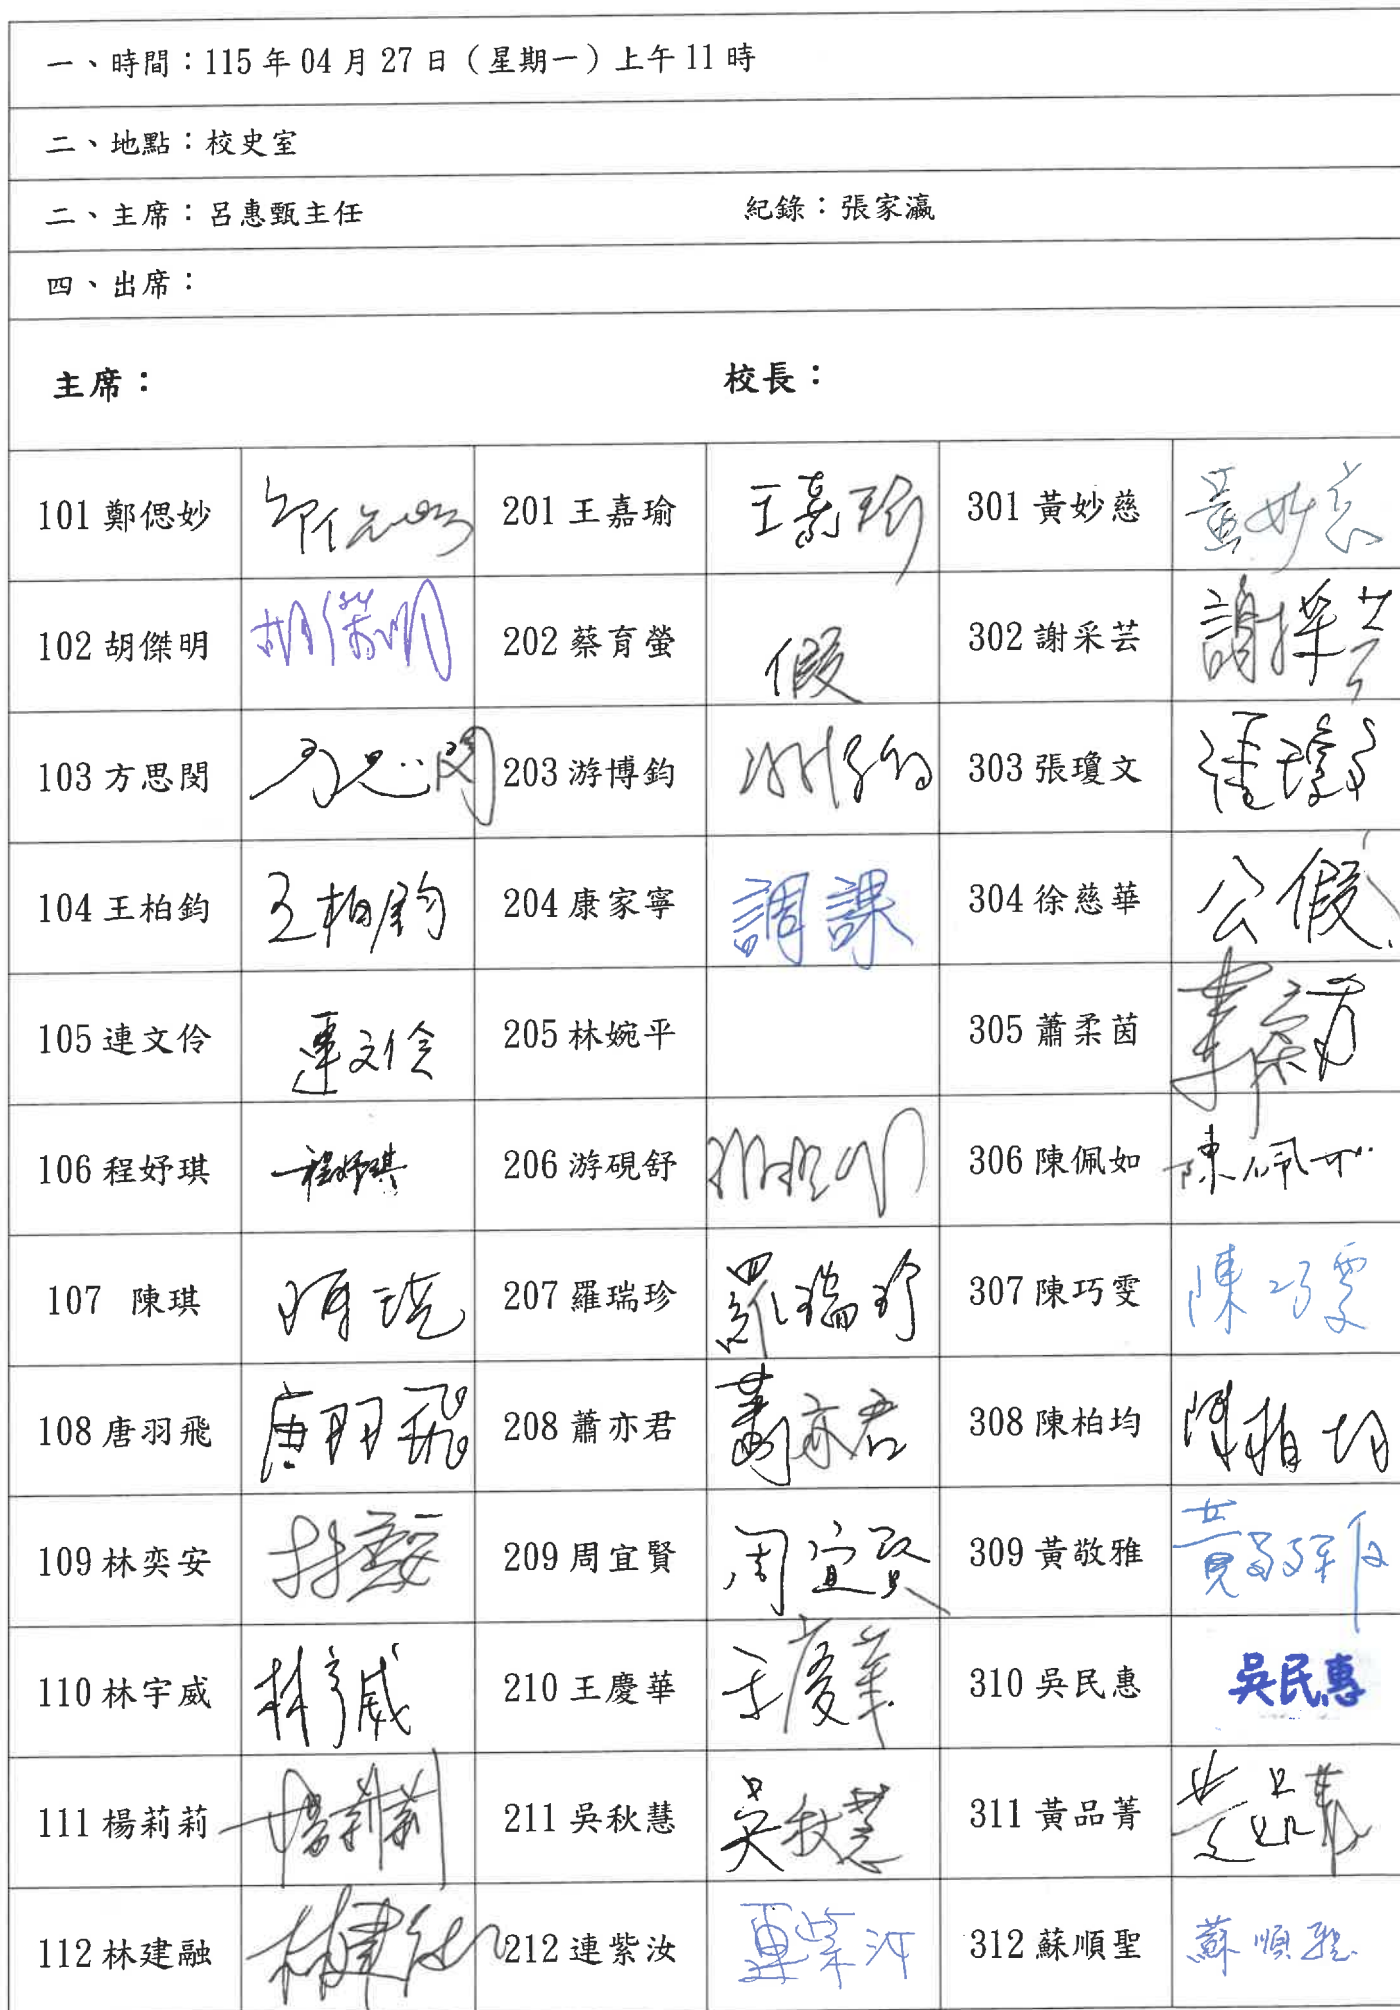 一、時間：115 年 04 月 27 日（星期一）上午 11 時
二、地點：校史室
二、主席：呂惠甄主任 紀錄：張家瀛
四、出席：
主席： 校長：
101 鄭偲妙 201 王嘉瑜 王嘉瑜 301 黃妙慈 黃妙慈
102 胡傑明 胡傑明 202 蔡育螢 假 302 謝采芸 謝採芸
103 方思閔 方思閔 203 游博鈞 303 張瓊文
104 王柏鈞 王柏鈞 204 康家寧 調課 304 徐慈華 公假
105 連文伶 連文伶 205 林婉平 305 蕭柔茵
106 程妤琪 程妤琪 206 游硯舒 306 陳佩如 陳佩如
107 陳琪 陳琪 207 羅瑞珍 羅瑞珍 307 陳巧雯 陳巧雯
108 唐羽飛 唐羽飛 208 蕭亦君 蕭亦君 308 陳柏均 陳柏均
109 林奕安 209 周宜賢 周宜賢 309 黃敬雅 黃敬雅
110 林宇威 林宇威 210 王慶華 王慶華 310 吳民惠 吳民惠
111 楊莉莉 楊莉莉 211 吳秋慧 吳秋慧 311 黃品菁
112 林建融 212 連紫汝 連紫汝 312 蘇順聖 蘇順聖